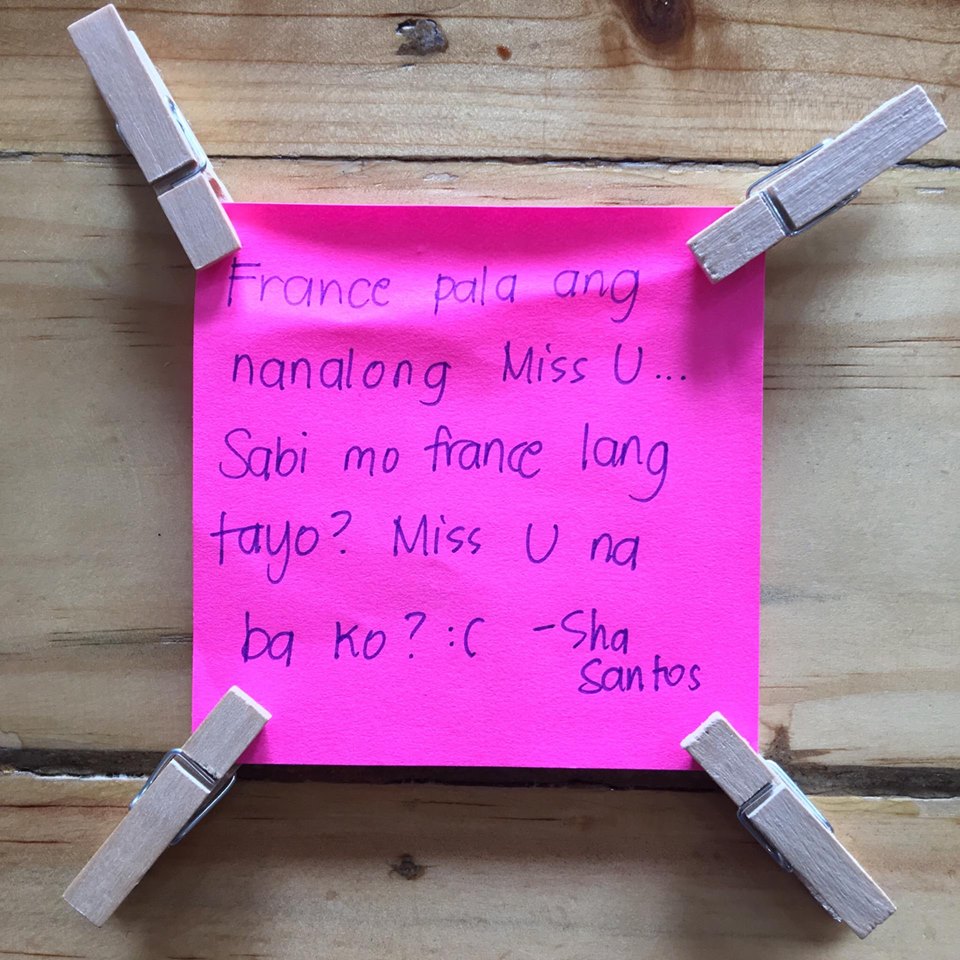 France pala ang
nanalong Miss U...
Sabi mo france lang
tayo? Miss U na
ba ko? :( -Sha
Santos